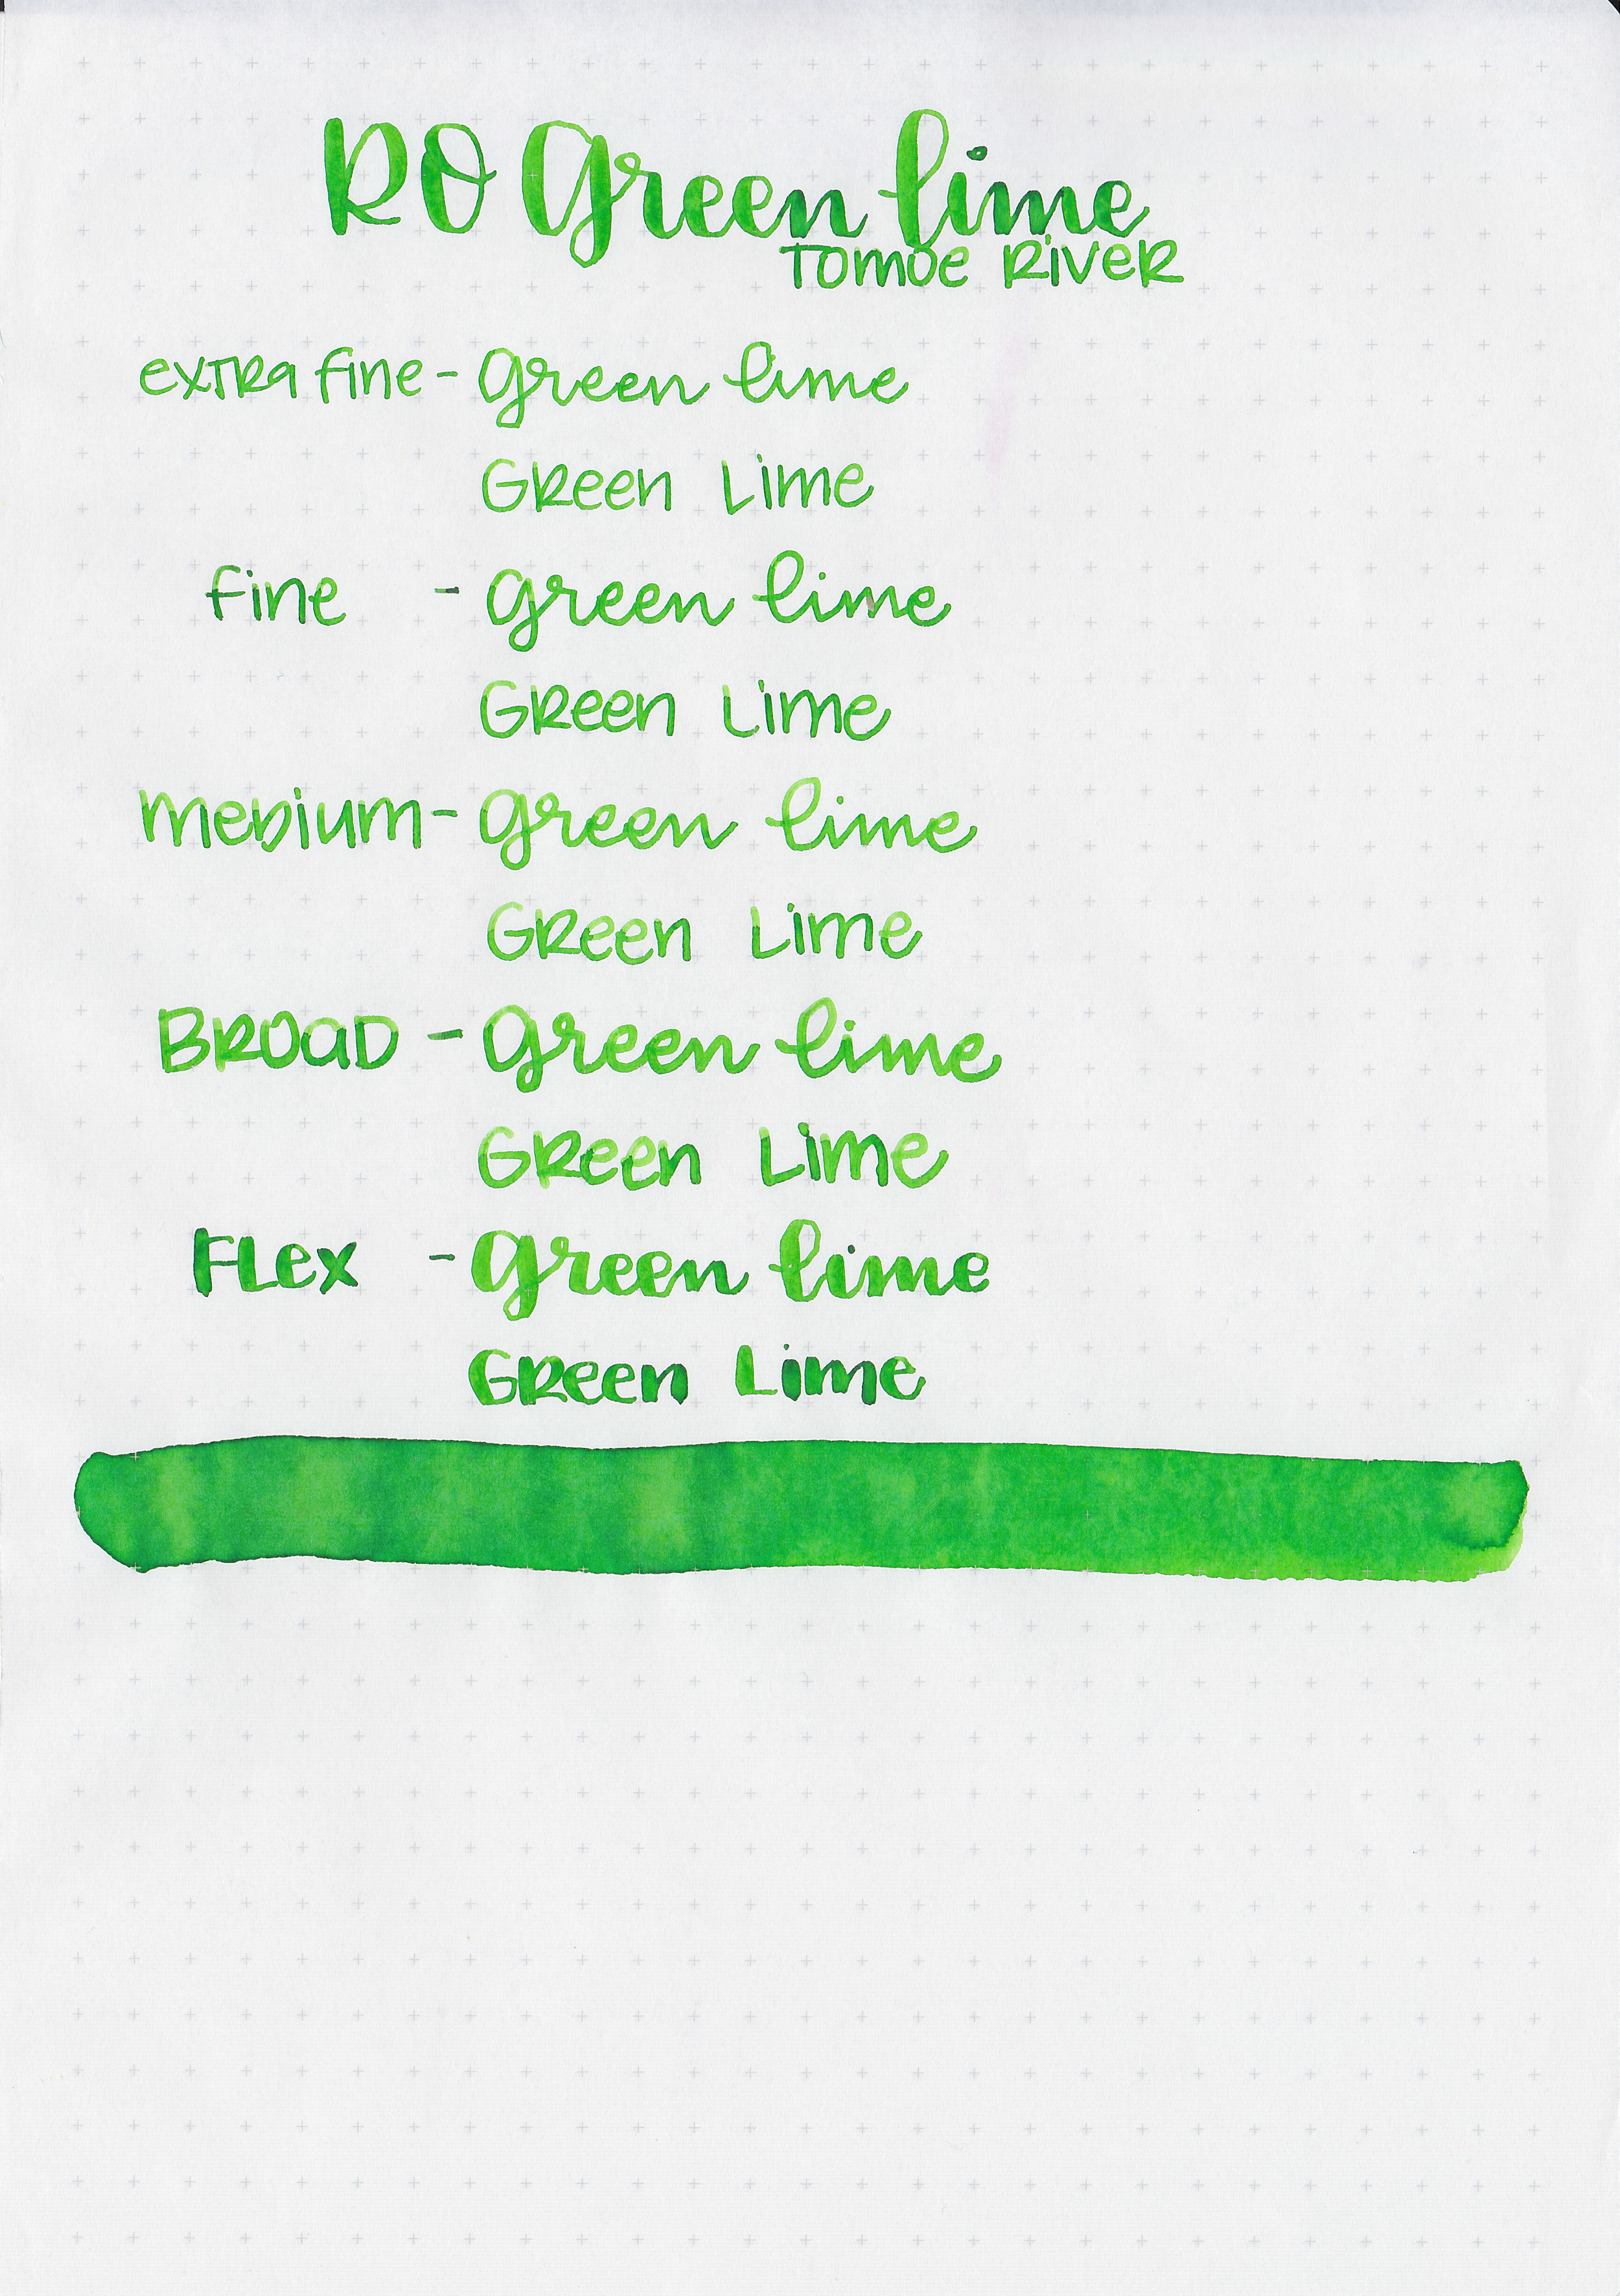 RO Green lime
Tomoe River
extra fine - green lime
Green Lime
fine - green lime
Green Lime
medium - green lime
Green Lime
Broad - green lime
Green Lime
Flex - green lime
Green Lime